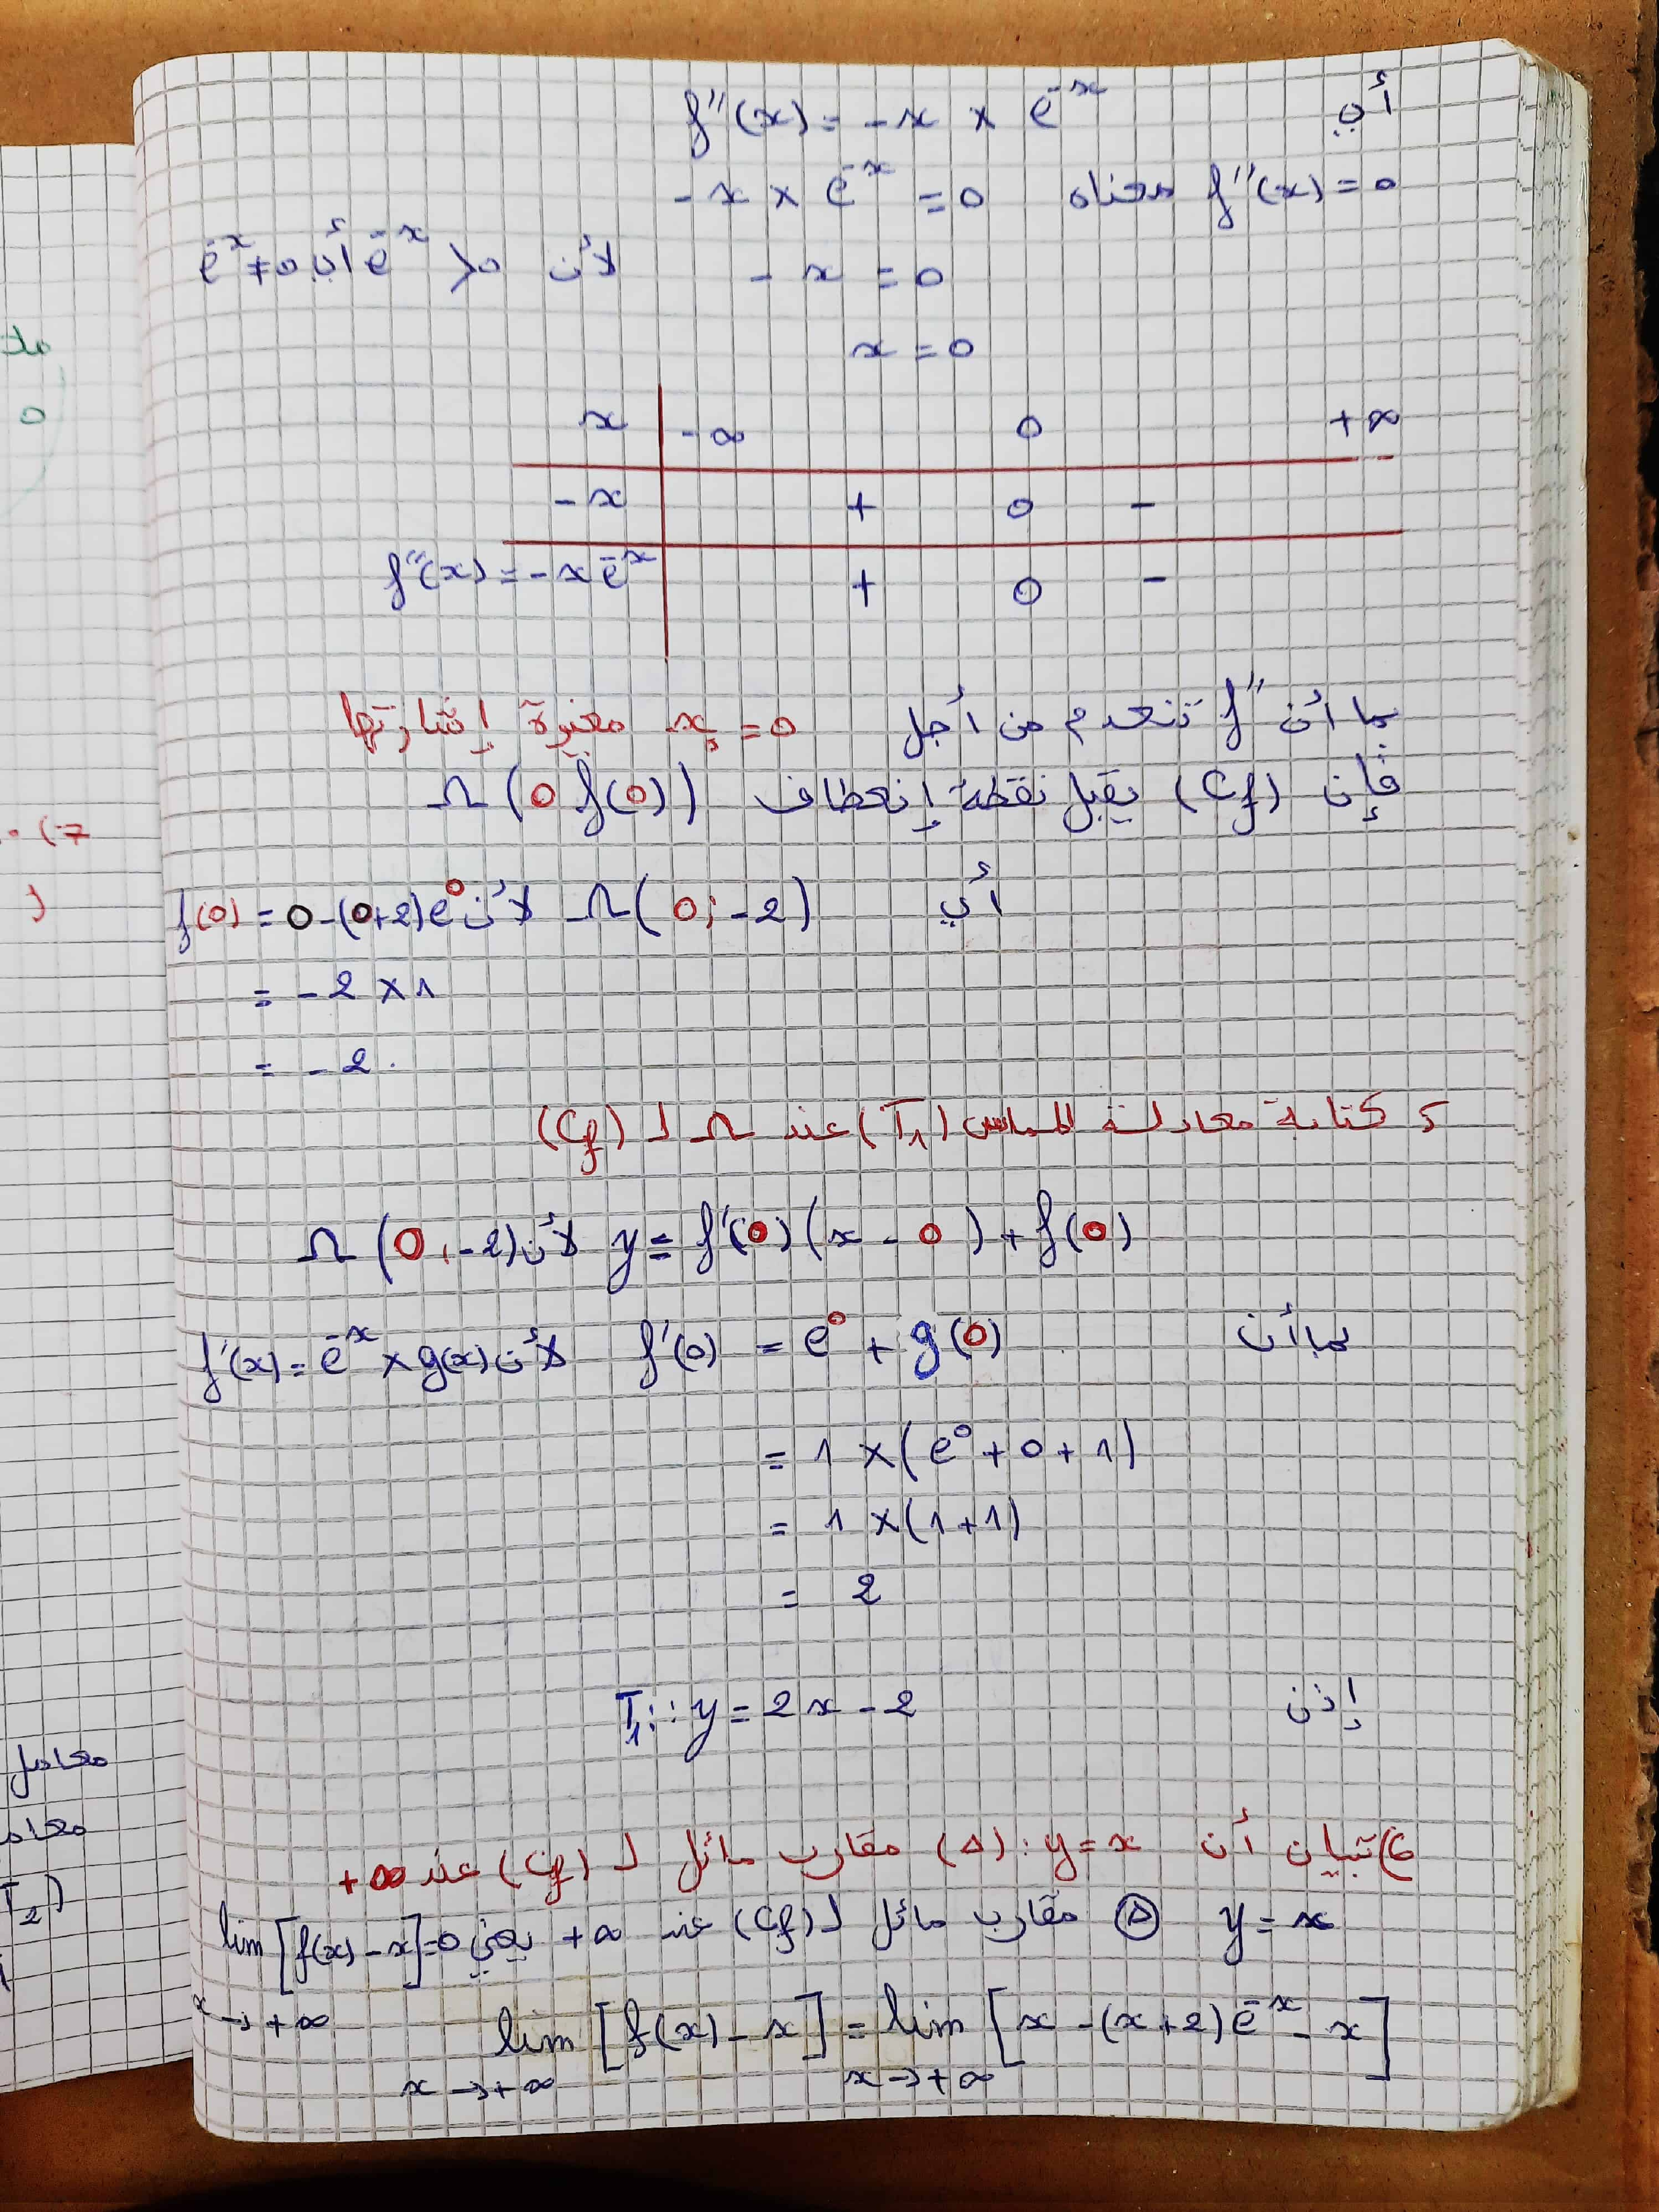 أي f''(x) = -x × e^-x
f''(x) = 0 معناه -x × e^-x = 0
-x = 0 لأن e^-x > 0 أي e^-x ≠ 0
x = 0
x -∞ 0 +∞
-x + 0 -
f''(x) = -x e^-x + 0 -
بما أن f'' تنعدم من أجل x = 0 مغيرة إشارتها
فإن (Cf) يقبل نقطة إنعطاف Ω(0 f(0))
أي Ω(0; -2) لأن f(0) = 0-(0+2)e^0
= -2 × 1
= -2.
5 كتابة معادلة المماس (T1) عند Ω لـ (Cf)
y = f'(0)(x - 0) + f(0) لأن Ω(0, -2)
بما أن f'(0) = e^0 + g(0) لأن f'(x) = e^-x × g(x)
= 1 × (e^0 + 0 + 1)
= 1 × (1+1)
= 2
إذن T1: y = 2x - 2
6) تبيان أن y = x : (Δ) مقارب مائل لـ (Cf) عند +∞
y = x (Δ) مقارب مائل لـ (Cf) عند +∞ يعني lim [f(x) - x] = 0
x→+∞
lim [f(x) - x] = lim [x - (x+2)e^-x - x]
x→+∞ x→+∞
معامل
T2)